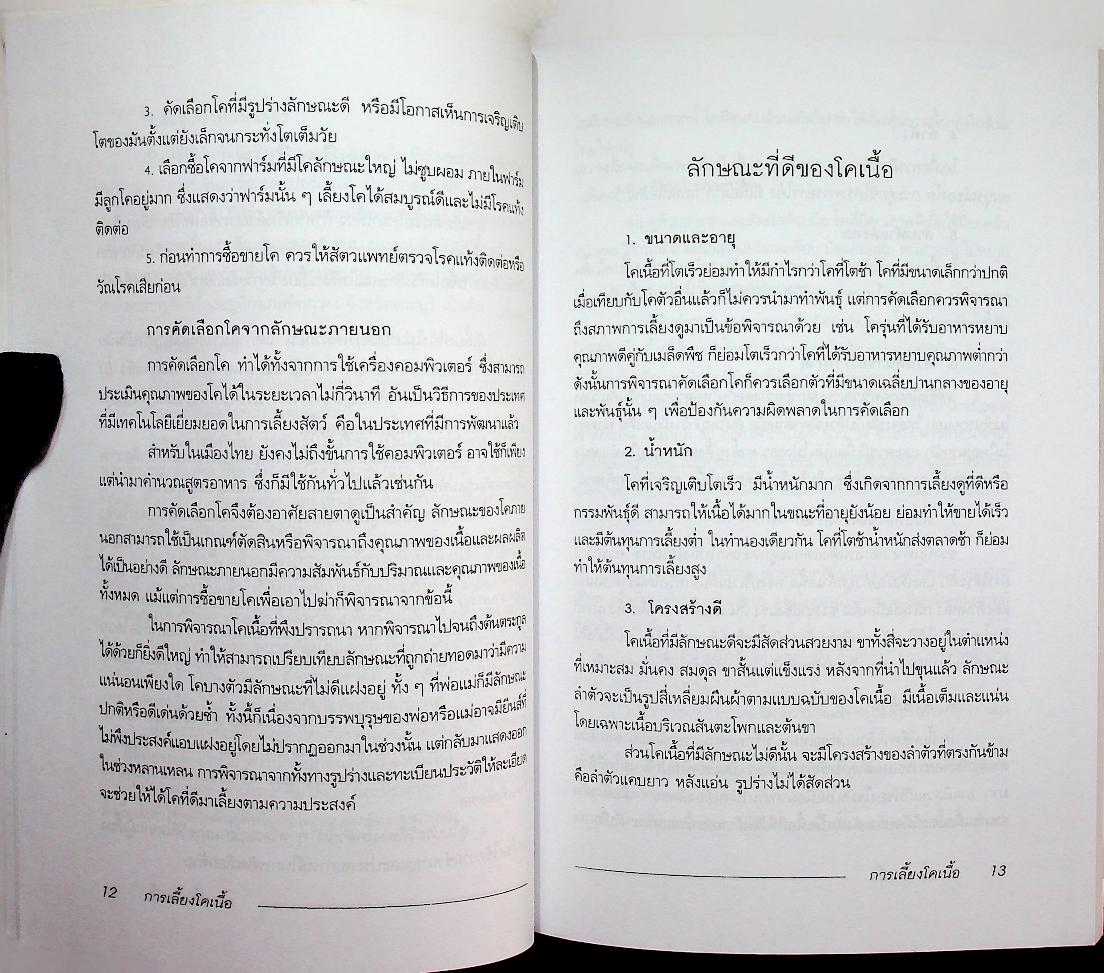 3. คัดเลือกโคที่มีรูปร่างลักษณะดี หรือมีโอกาสเห็นการเจริญเติบ
โตของมันตั้งแต่ยังเล็กจนกระทั่งโตเต็มวัย
4. เลือกซื้อโคจากฟาร์มที่มีโคลักษณะใหญ่ ไม่ซูบผอม ภายในฟาร์ม
มีลูกโคอยู่มาก ซึ่งแสดงว่าฟาร์มนั้น ๆ เลี้ยงโคได้สมบูรณ์ดีและไม่มีโรคแท้ง
ติดต่อ
5. ก่อนทำการซื้อขายโค ควรให้สัตวแพทย์ตรวจโรคแท้งติดต่อหรือ
วัณโรคเสียก่อน
การคัดเลือกโคจากลักษณะภายนอก
การคัดเลือกโค ทำได้ทั้งจากการใช้เครื่องคอมพิวเตอร์ ซึ่งสามารถ
ประเมินคุณภาพของโคได้ในระยะเวลาไม่กี่วินาที อันเป็นวิธีการของประเทศ
ที่มีเทคโนโลยีเยี่ยมยอดในการเลี้ยงสัตว์ คือในประเทศที่มีการพัฒนาแล้ว
สำหรับในเมืองไทย ยังคงไม่ถึงขั้นการใช้คอมพิวเตอร์ อาจใช้ก็เพียง
แต่นำมาคำนวณสูตรอาหาร ซึ่งก็มีใช้กันทั่วไปแล้วเช่นกัน
การคัดเลือกโคจึงต้องอาศัยสายตาดูเป็นสำคัญ ลักษณะของโคภาย
นอกสามารถใช้เป็นเกณฑ์ตัดสินหรือพิจารณาถึงคุณภาพของเนื้อและผลผลิต
ได้เป็นอย่างดี ลักษณะภายนอกมีความสัมพันธ์กับปริมาณและคุณภาพของเนื้อ
ทั้งหมด แม้แต่การซื้อขายโคเพื่อเอาไปฆ่าก็พิจารณาจากข้อนี้
ในการพิจารณาโคเนื้อที่พึงปรารถนา หากพิจารณาไปจนถึงต้นตระกูล
ได้ด้วยก็ยิ่งดีใหญ่ ทำให้สามารถเปรียบเทียบลักษณะที่ถูกถ่ายทอดมาว่ามีความ
แน่นอนเพียงใด โคบางตัวมีลักษณะที่ไม่ดีแฝงอยู่ ทั้ง ๆ ที่พ่อแม่ก็มีลักษณะ
ปกติหรือดีเด่นด้วยซ้ำ ทั้งนี้ก็เนื่องจากบรรพบุรุษของพ่อหรือแม่อาจมียีนส์ที่
ไม่พึงประสงค์แอบแฝงอยู่โดยไม่ปรากฏออกมาในช่วงนั้น แต่กลับมาแสดงออก
ในช่วงหลานเหลน การพิจารณาจากทั้งทางรูปร่างและทะเบียนประวัติให้ละเอียด
จะช่วยให้ได้โคที่ดีมาเลี้ยงตามความประสงค์
12 การเลี้ยงโคเนื้อ
ลักษณะที่ดีของโคเนื้อ
1. ขนาดและอายุ
โคเนื้อที่โตเร็วย่อมทำให้มีกำไรกว่าโคที่โตช้า โคที่มีขนาดเล็กกว่าปกติ
เมื่อเทียบกับโคตัวอื่นแล้วก็ไม่ควรนำมาทำพันธุ์ แต่การคัดเลือกควรพิจารณา
ถึงสภาพการเลี้ยงดูมาเป็นข้อพิจารณาด้วย เช่น โครุ่นที่ได้รับอาหารหยาบ
คุณภาพดีคู่กับเมล็ดพืช ก็ย่อมโตเร็วกว่าโคที่ได้รับอาหารหยาบคุณภาพต่ำกว่า
ดังนั้นการพิจารณาคัดเลือกโคก็ควรเลือกตัวที่มีขนาดเฉลี่ยปานกลางของอายุ
และพันธุ์นั้น ๆ เพื่อป้องกันความผิดพลาดในการคัดเลือก
2. น้ำหนัก
โคที่เจริญเติบโตเร็ว มีน้ำหนักมาก ซึ่งเกิดจากการเลี้ยงดูที่ดีหรือ
กรรมพันธุ์ดี สามารถให้เนื้อได้มากในขณะที่อายุยังน้อย ย่อมทำให้ขายได้เร็ว
และมีต้นทุนการเลี้ยงต่ำ ในทำนองเดียวกัน โคที่โตช้าน้ำหนักส่งตลาดช้า ก็ย่อม
ทำให้ต้นทุนการเลี้ยงสูง
3. โครงสร้างดี
โคเนื้อที่มีลักษณะดีจะมีสัดส่วนสวยงาม ขาทั้งสี่จะวางอยู่ในตำแหน่ง
ที่เหมาะสม มั่นคง สมดุล ขาสั้นแต่แข็งแรง หลังจากที่นำไปขุนแล้ว ลักษณะ
ลำตัวจะเป็นรูปสี่เหลี่ยมผืนผ้าตามแบบฉบับของโคเนื้อ มีเนื้อเต็มและแน่น
โดยเฉพาะเนื้อบริเวณสันตะโพกและต้นขา
ส่วนโคเนื้อที่มีลักษณะไม่ดีนั้น จะมีโครงสร้างของลำตัวที่ตรงกันข้าม
คือลำตัวแคบยาว หลังแอ่น รูปร่างไม่ได้สัดส่วน
การเลี้ยงโคเนื้อ 13